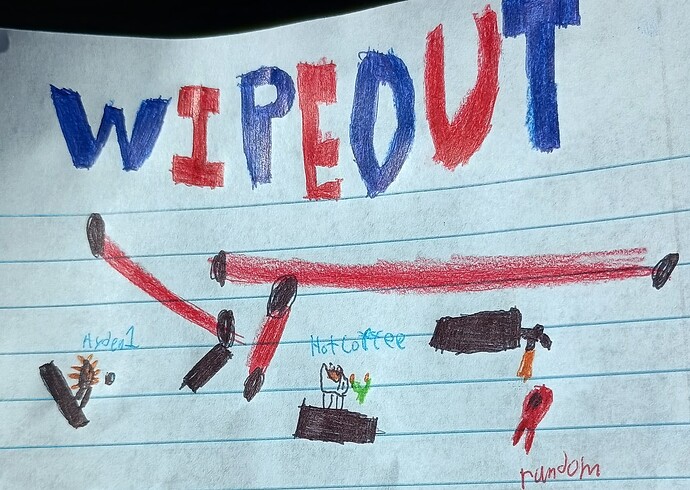 WIPEOUT
Ayden1
HotCoffee
random